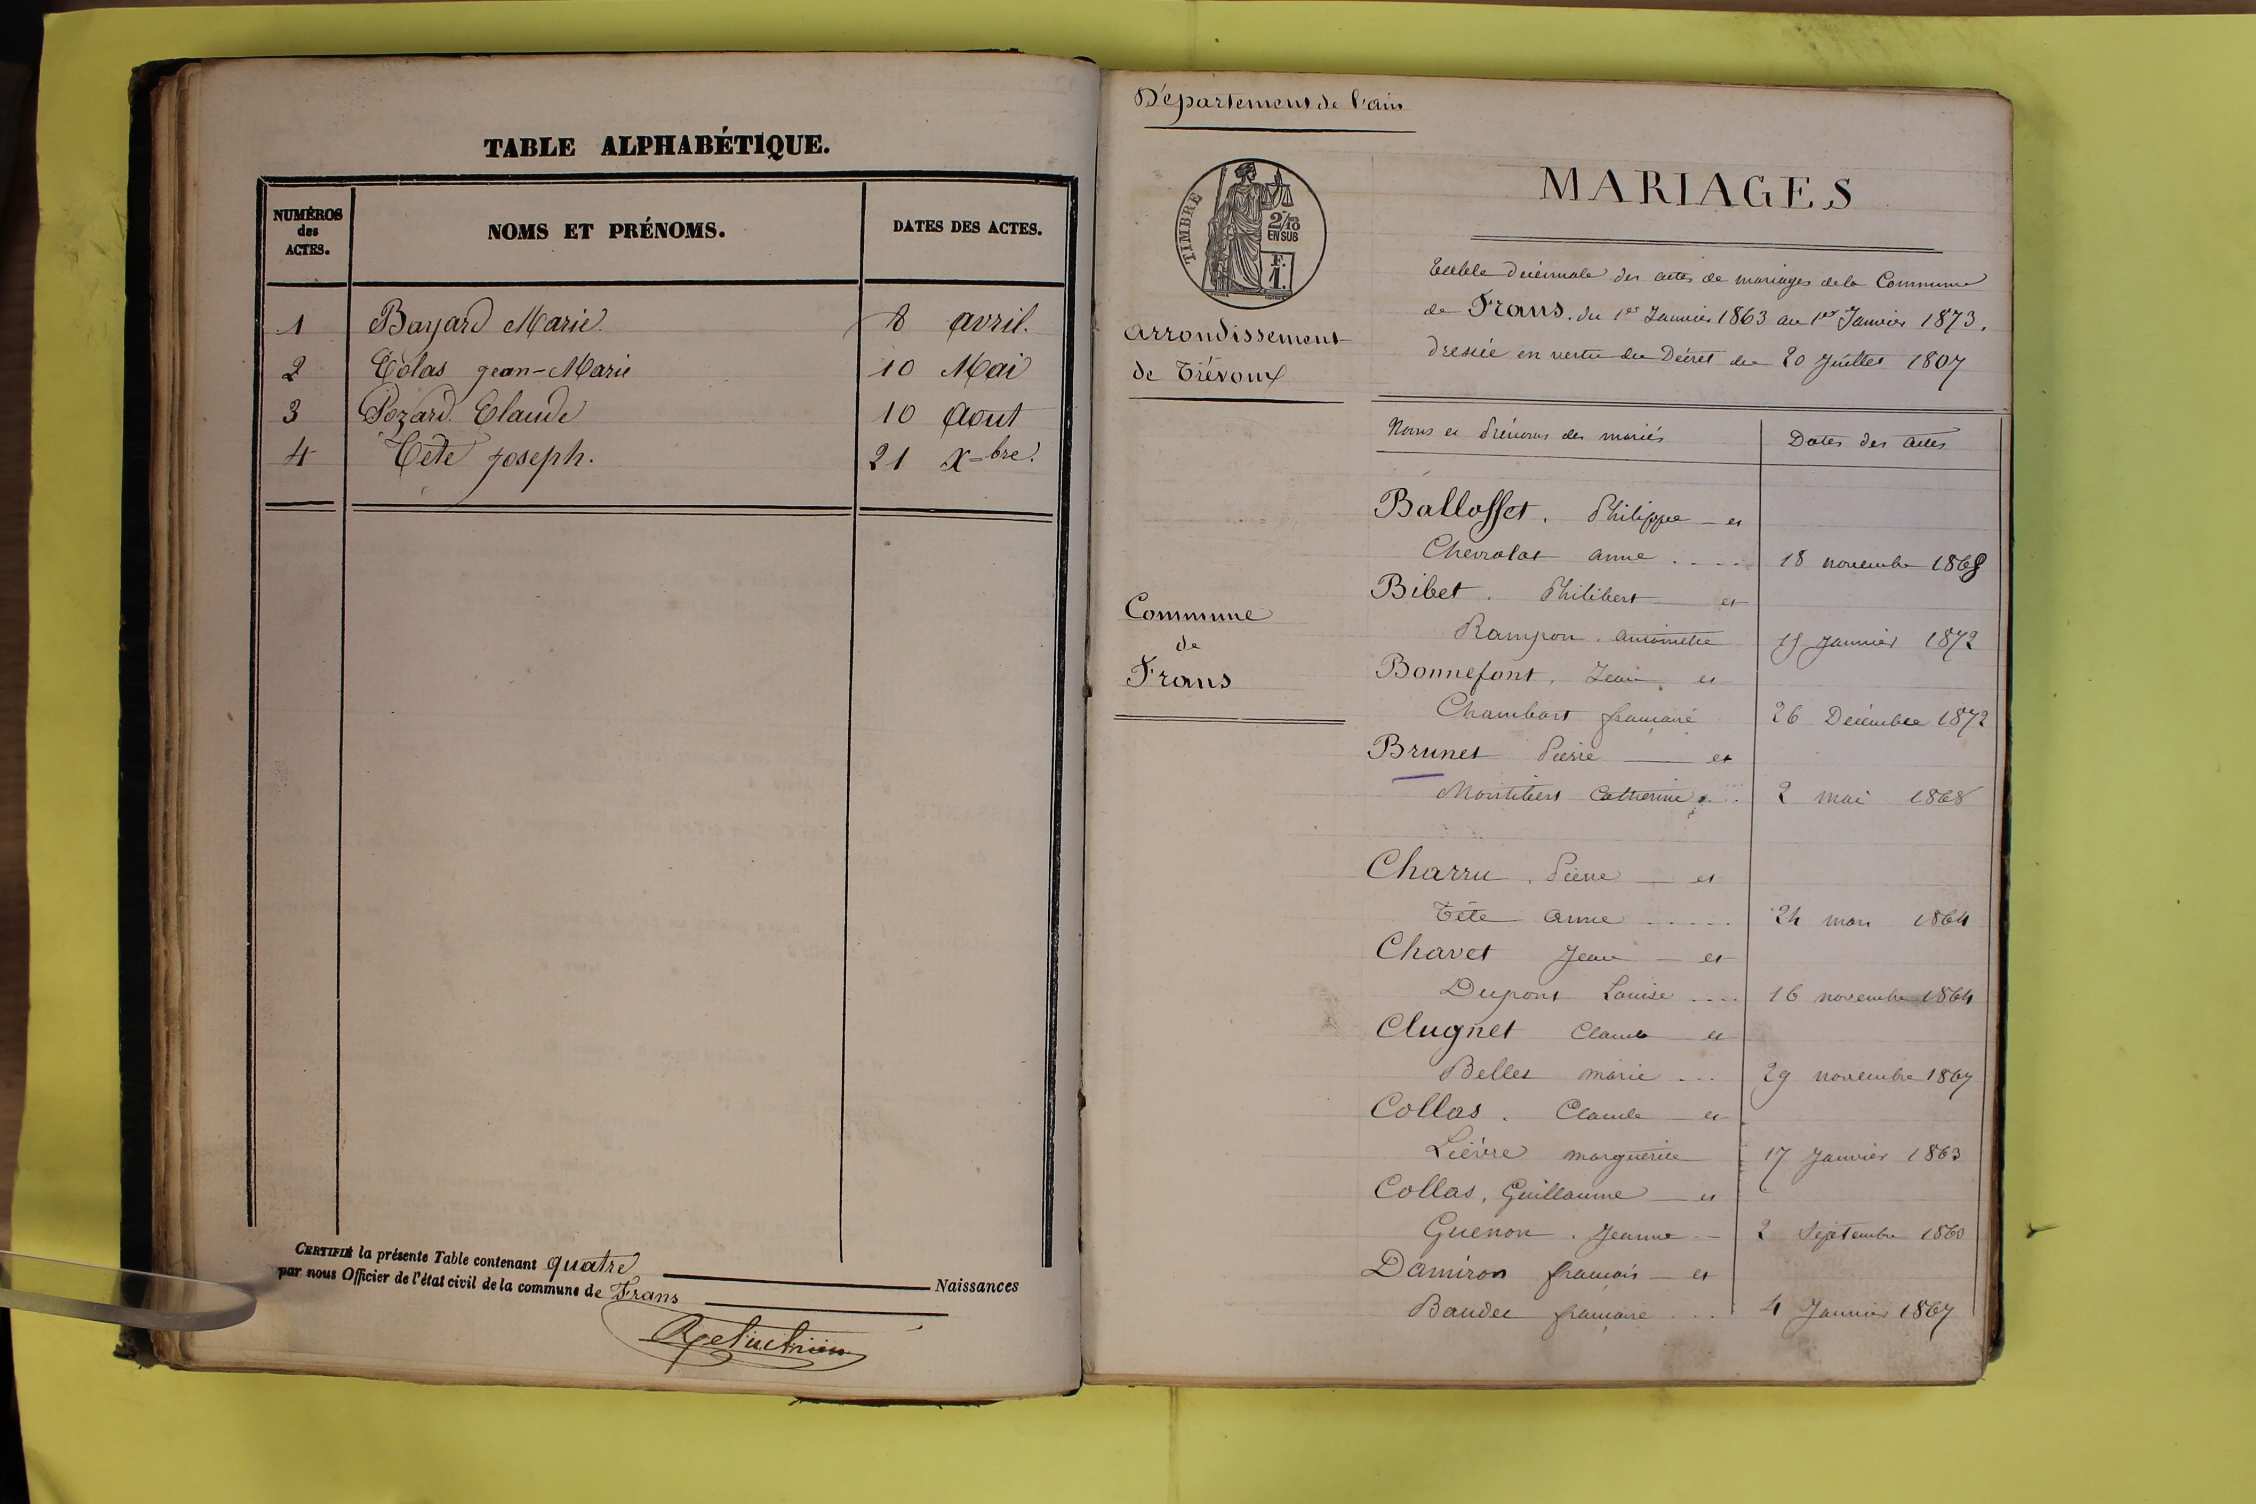 TABLE ALPHABÉTIQUE.
NUMÉROS des ACTES.
NOMS ET PRÉNOMS.
DATES DES ACTES.
1 Bayard Marie. 8 avril.
2 Colas jean-Marie 10 Mai
3 Pozard Claude 10 Aout
4 Tête joseph. 21 X=bre.
CERTIFIÉ la présente Table contenant quatre Naissances
par nous Officier de l'état civil de la commune de Frans
Département de l'ain
TIMBRE
2/10
EN SUS
F.
1.
arrondissement
de Trévoux
Commune
de
Frans
MARIAGES
Table décennale des actes de mariages de la Commune
de Frans. du 1er Janvier 1863 au 1er Janvier 1873.
dressée en vertu du Décret du 20 Juillet 1807
Noms et Prénoms des mariés Dates des actes
Ballosset. Philippe et
Chevrolat anne .... 18 novembre 1868
Bibet. Philibert et
Rampon. antoinette Janvier 1872
Bonnefont, Jean et
Chambart française 26 Décembre 1872
Brunet Pierre et
Montibert Catherine 2 mai 1868
Charru. Pierre et
Tête anne ..... 24 mars 1864
Chavet Jean et
Dupont Louise .... 16 novembre 1864
Clugnet Claude et
Bellet marie ... 29 novembre 1867
Collas. Claude et
Lièvre marguerite 17 Janvier 1863
Collas, Guillaume et
Guenon. Jeanne 2 Septembre
Damiron françois et
Baudet française ... 4 Janvier 1867